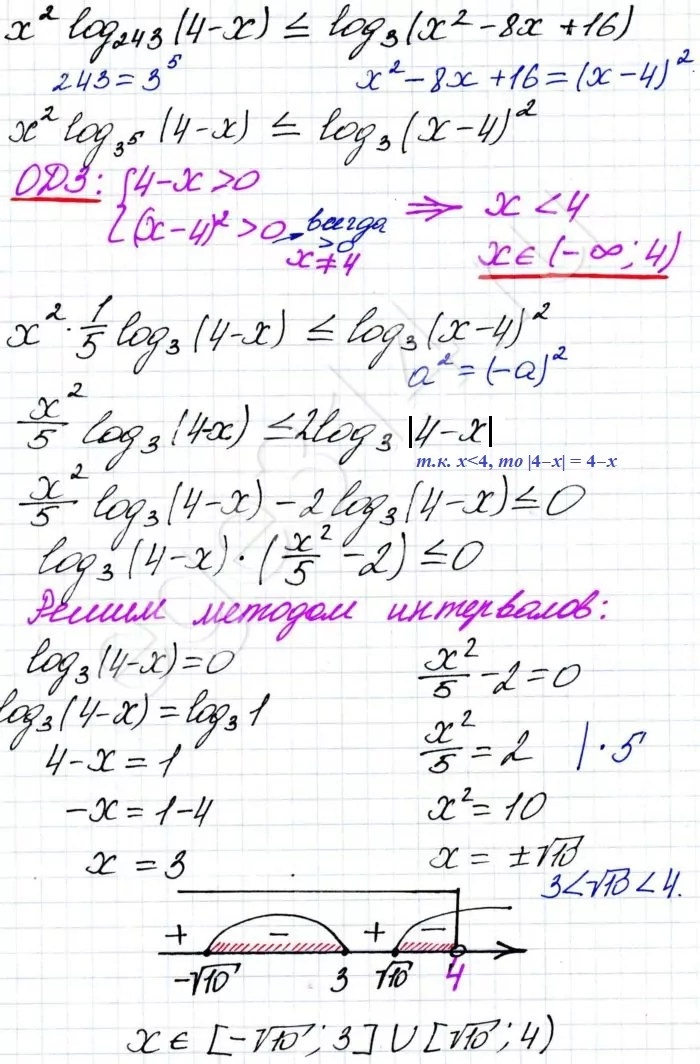 x² log₂₄₃(4-x) ≤ log₃(x²-8x+16)
243 = 3⁵ x²-8x+16=(x-4)²
x² log₃⁵(4-x) ≤ log₃(x-4)²
ОДЗ: {4-x>0
(x-4)²>0 → всегда >0 x≠4 ⇒ x<4
x∈(-∞;4)
x²·1/5 log₃(4-x) ≤ log₃(x-4)²
a²=(-a)²
x²/5 log₃(4-x) ≤ 2log₃|4-x|
т.к. x<4, то |4–x| = 4–x
x²/5 log₃(4-x)-2log₃(4-x)≤0
log₃(4-x)·(x²/5-2)≤0
Решим методом интервалов:
log₃(4-x)=0 x²/5-2=0
log₃(4-x)=log₃1 x²/5=2 |·5
4-x=1
-x=1-4 x²=10
x=3 x=±√10
3<√10<4.
+ - + -
-√10 3 √10 4
x∈[-√10;3]∪[√10;4)